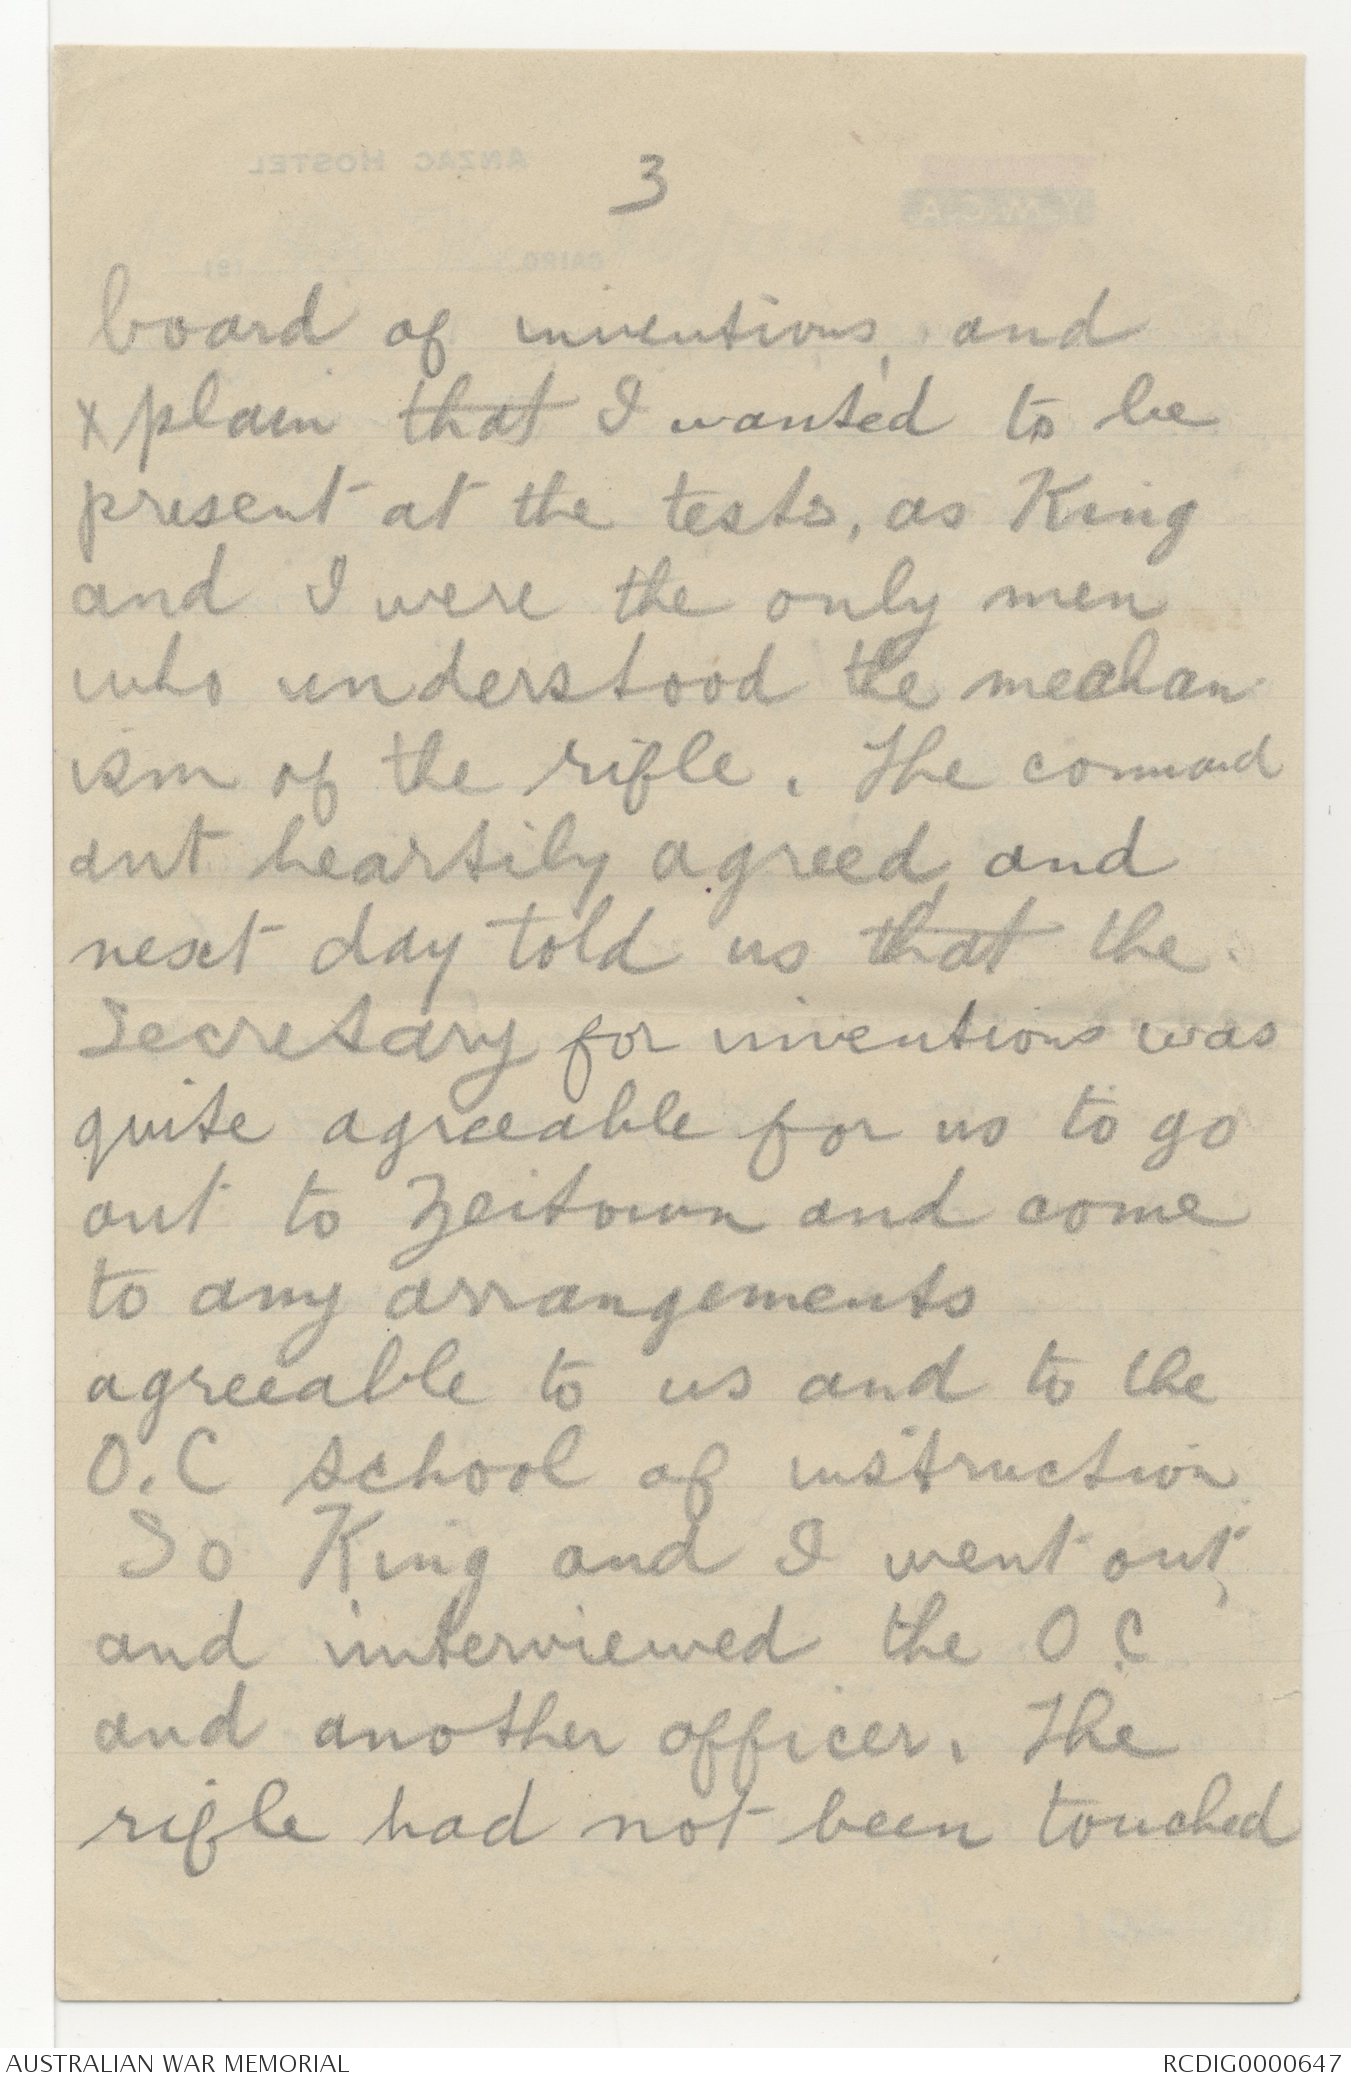 3
board of inventions, and
xplain that I wanted to be
present at the tests, as King
and I were the only men
who understood the mechan
ism of the rifle. The command
ant heartily agreed, and
next day told us that the
Secretary for inventions was
quite agreeable for us to go
out to Zeitown and come
to any arrangements
agreeable to us and to the
O.C school of instruction
So King and I went out,
and interviewed the O.C
and another officer. The
rifle had not been touched
ANZAC HOSTEL
Y.M.C.A.
CAIRO 191
AUSTRALIAN WAR MEMORIAL
RCDIG0000647